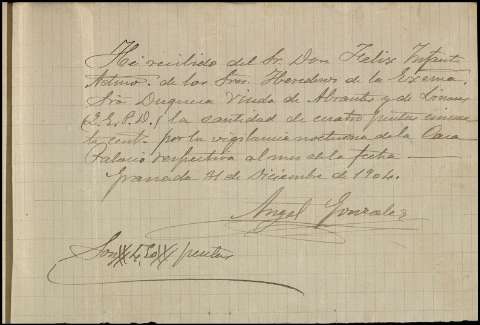 He recibido del Sr. Don Felix Infante
Admor. de los Sres. Herederos de la Excma.
Sra. Duquesa Viuda de Abrantes y de Linares
(Q.E.P.D.) la cantidad de cuatro pesetas cincuen
ta cent. por la vigilancia nocturna de la Casa
Palacio respectiva al mes de la fecha
Granada 31 de Diciembre de 1904.
Angel Gonzalez
Son # 4,50 # pesetas